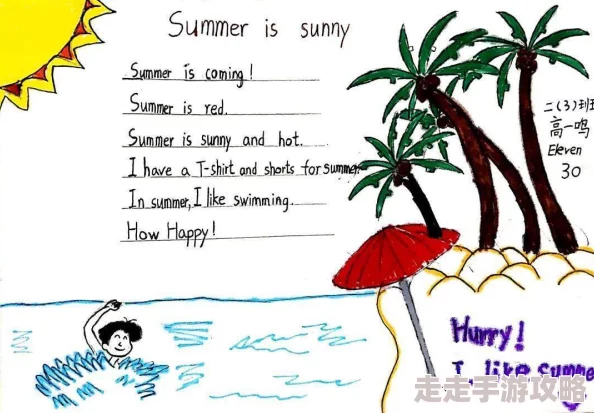 Summer is sunny
Summer is coming!
Summer is red.
Summer is sunny and hot.
I have a T-shirt and shorts for summer.
In summer, I like swimming.
How Happy!
二(3)班
高一鸣
Eleven
30
Hurry!
I like Summe
走走手游攻略